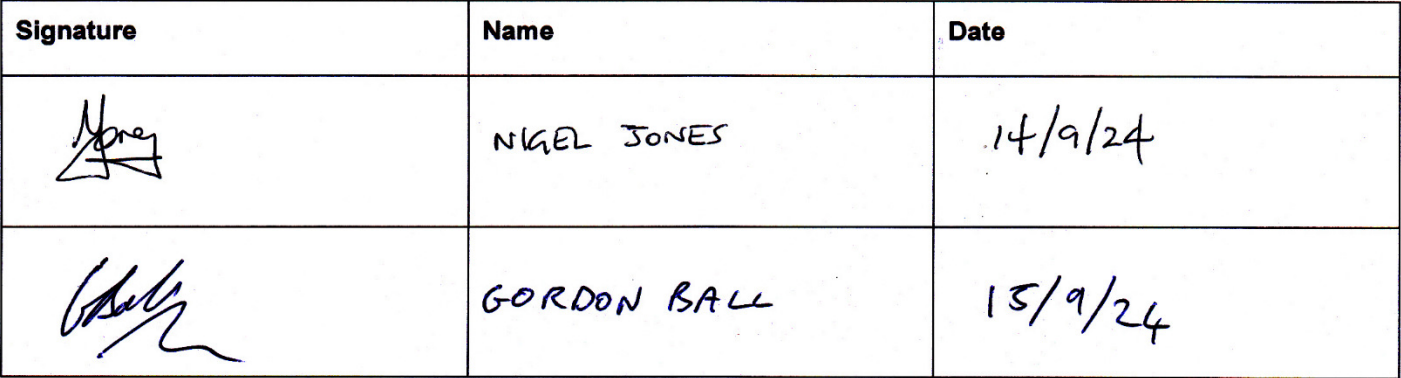 Signature Name Date
NIGEL JONES 14/9/24
GBall GORDON BALL 15/9/24